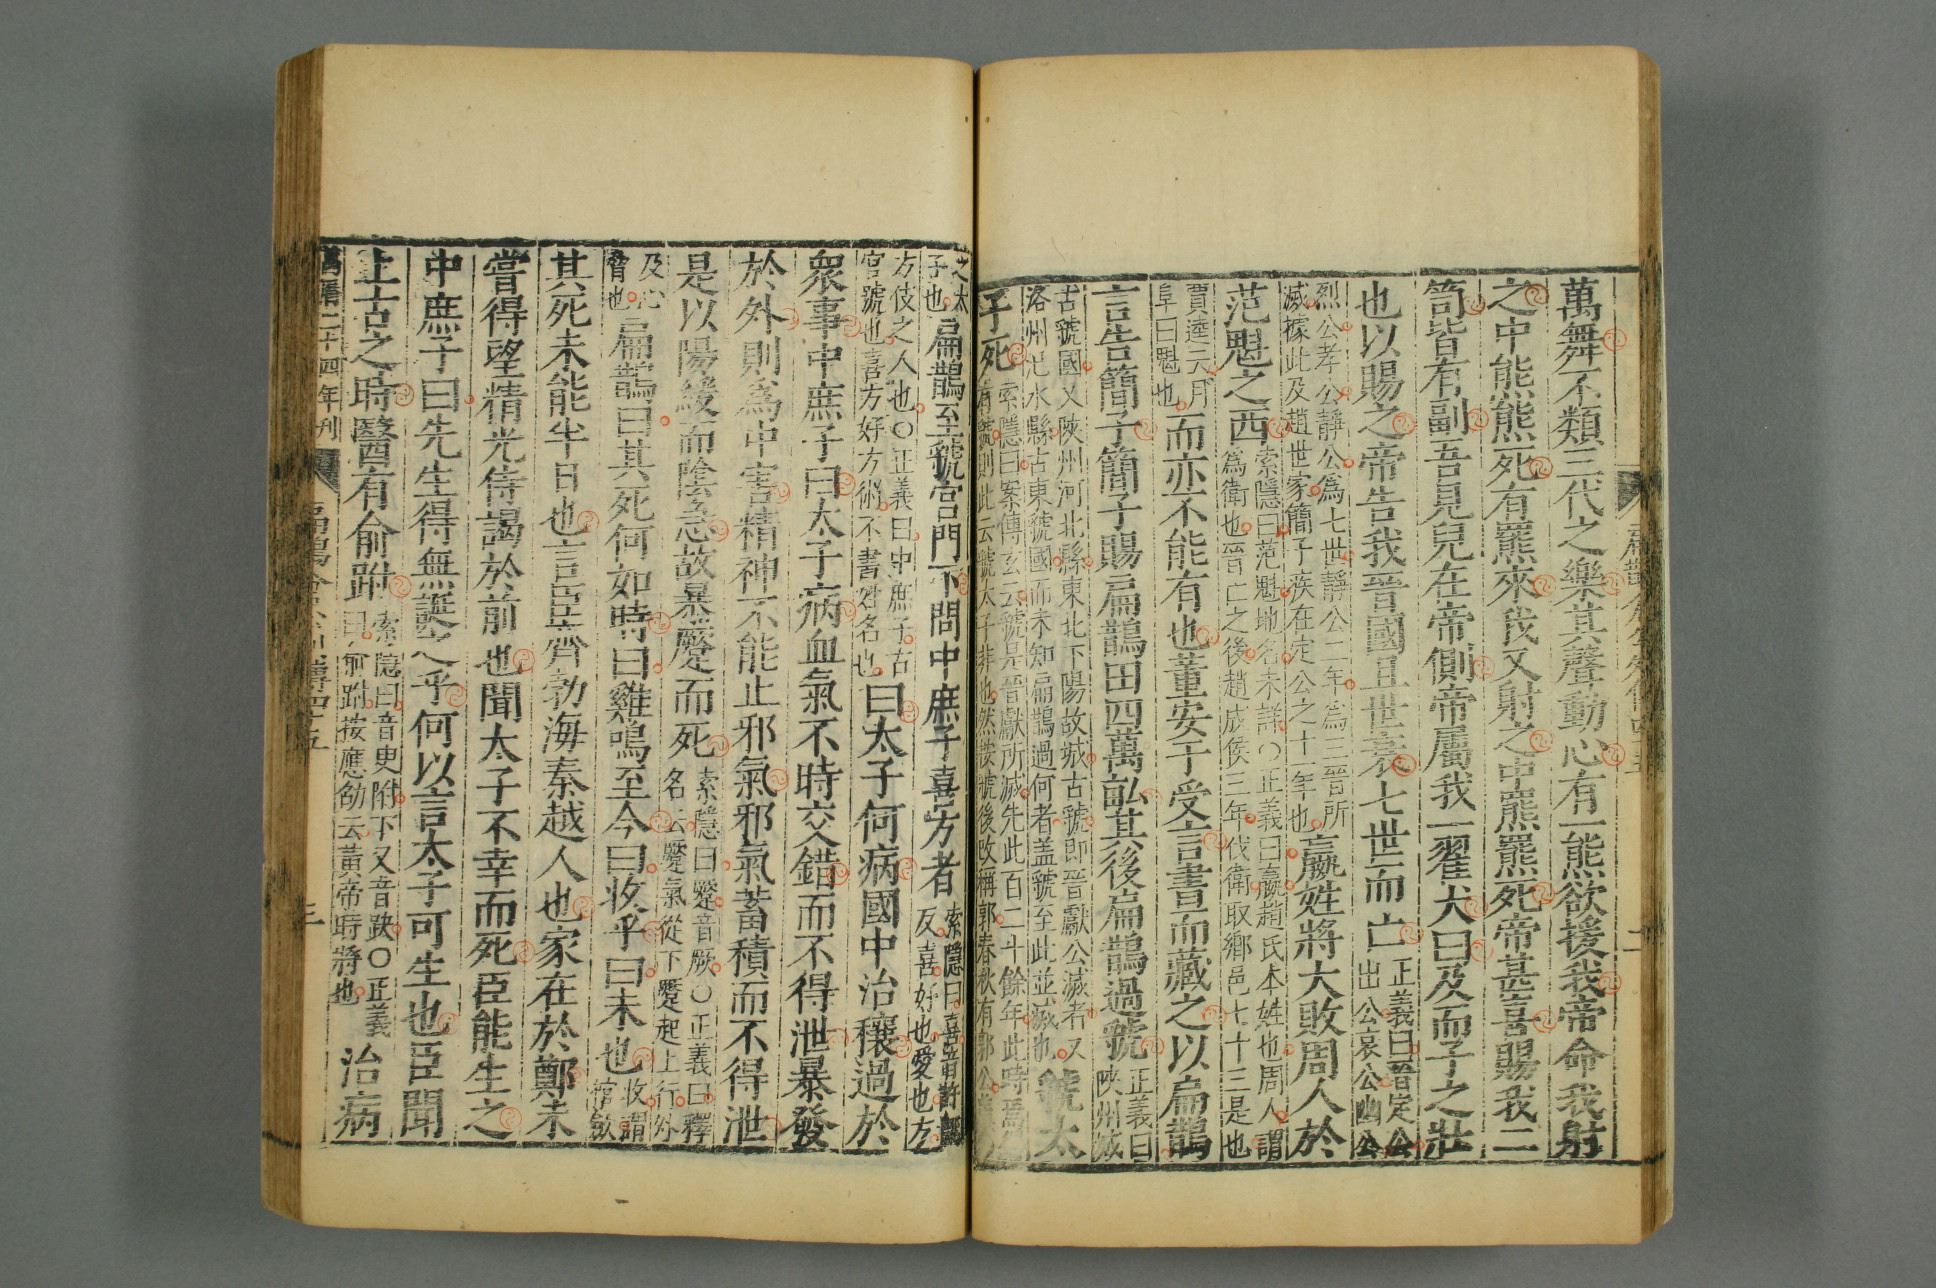 萬舞不類三代之樂其聲動心有一熊欲援我帝命我射
之中熊熊死有羆來我又射之中羆羆死帝甚喜賜我二
笥皆有副吾見兒在帝側帝屬我一翟犬曰及而子之壯
也以賜之帝告我晉國且世衰七世而亡
正義曰晉定公
出公哀公幽公
烈公孝公靜公為七世靜公二年為三晉所
滅據此及趙世家簡子疾在定公之十一年也
嬴姓將大敗周人於
范魁之西
索隱曰范魁地名未詳○正義曰嬴趙氏本姓也周人謂
為衛也晉亡之後趙成侯三年伐衛取鄉邑七十三是也
賈逵云
阜曰魁也
而亦不能有也董安于受言書而藏之以扁鵲
言告簡子簡子賜扁鵲田四萬畝其後扁鵲過虢
正義曰
陝州城
古虢國又陝州河北縣東北下陽故城古虢即晉獻公滅者又
洛州汜水縣古東虢國而未知扁鵲過何者蓋虢至此並滅也
虢太
子死
索隱曰案傳玄云虢是晉獻所滅先此百二十餘年此時焉
有虢則此云虢太子非也然按虢後改稱郭春秋有郭公
之太
子也
扁鵲至虢宮門下問中庶子喜方者
索隱曰喜音許
反喜好也愛也方
方伎之人也○正義曰中庶子古
官號也喜方好方術不書姓名也
曰太子何病國中治穰過於
衆事中庶子曰太子病血氣不時交錯而不得泄暴發
於外則為中害精神不能止邪氣邪氣蓄積而不得泄
是以陽緩而陰急故暴蹷而死
索隱曰蹷音厥○正義曰釋
名云蹷氣從下蹷起上行外
及心
脅也
扁鵲曰其死何如時曰雞鳴至今曰收乎曰未也
收謂
棺斂
其死未能半日也言臣齊勃海秦越人也家在於鄭未
嘗得望精光侍謁於前也聞太子不幸而死臣能生之
中庶子曰先生得無誕之乎何以言太子可生也臣聞
上古之時醫有俞跗
索隱曰音臾附下又音趺○正義
曰俞跗按應劭云黃帝時將也
治病
二十四年刊
三